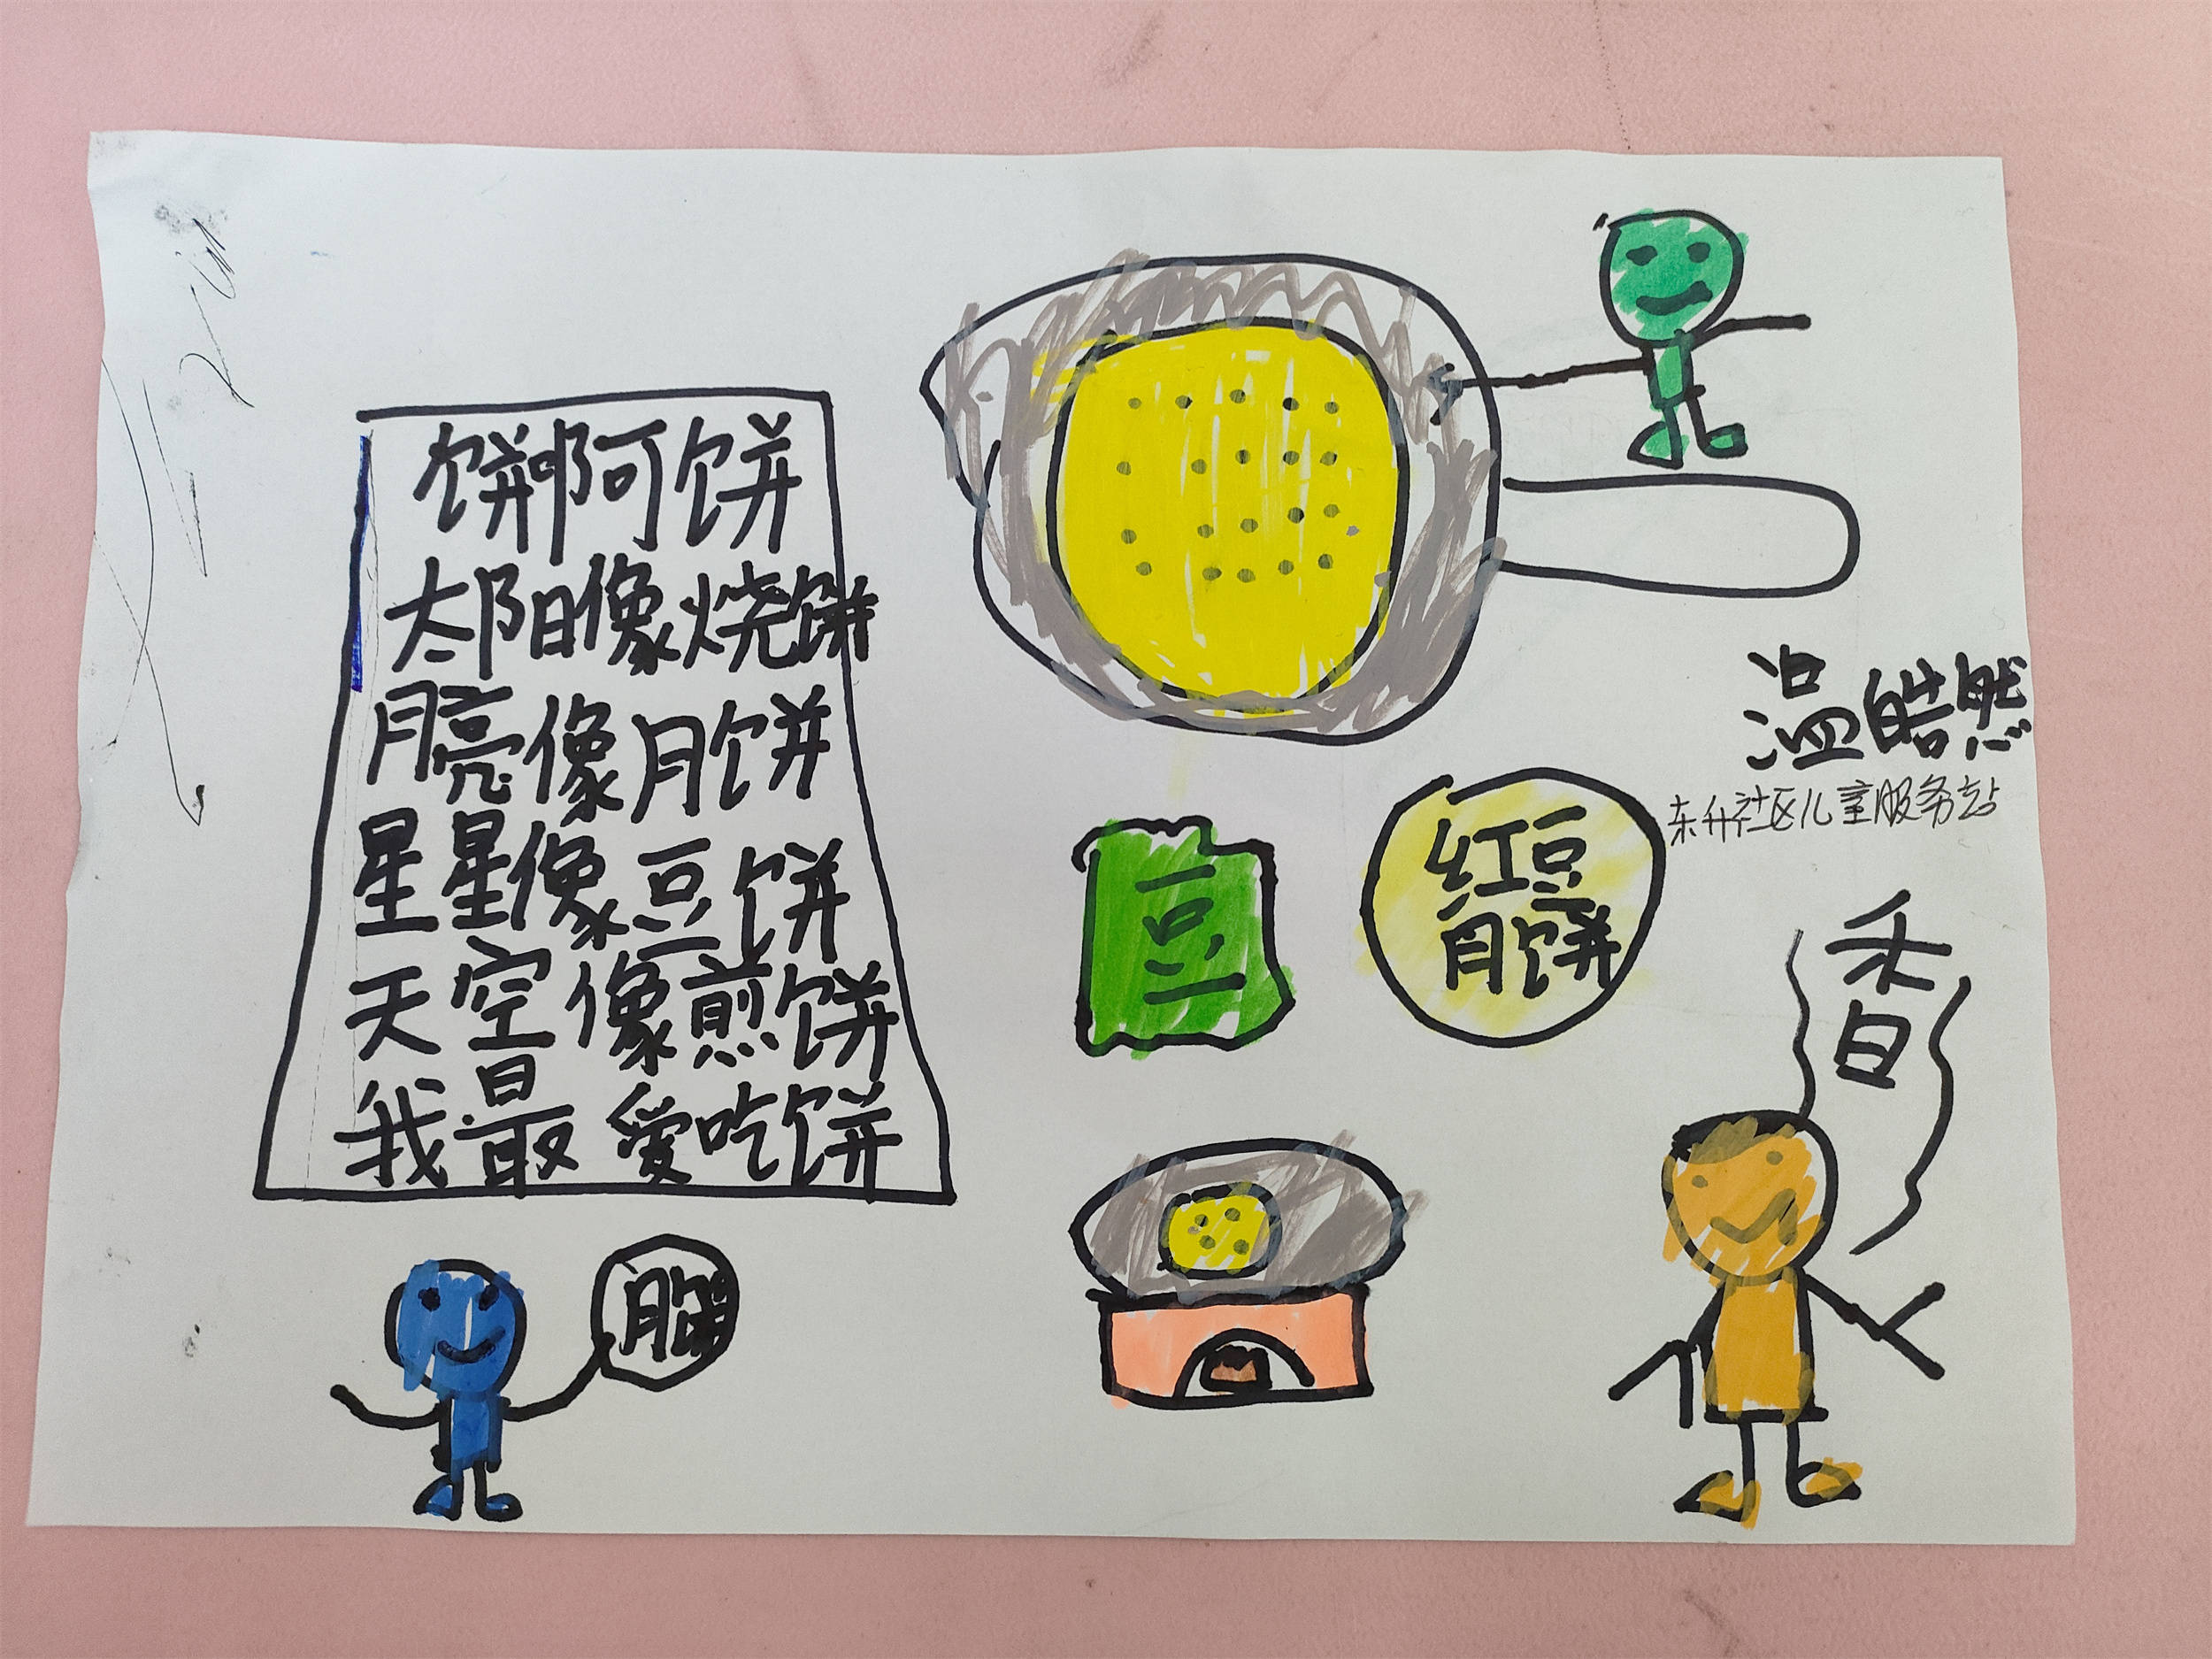 饼啊饼
太阳像烧饼
月亮像月饼
星星像豆饼
天空像煎饼
我最爱吃饼
温皓然
东升社区儿童服务站
豆
红豆
月饼
香
月饼